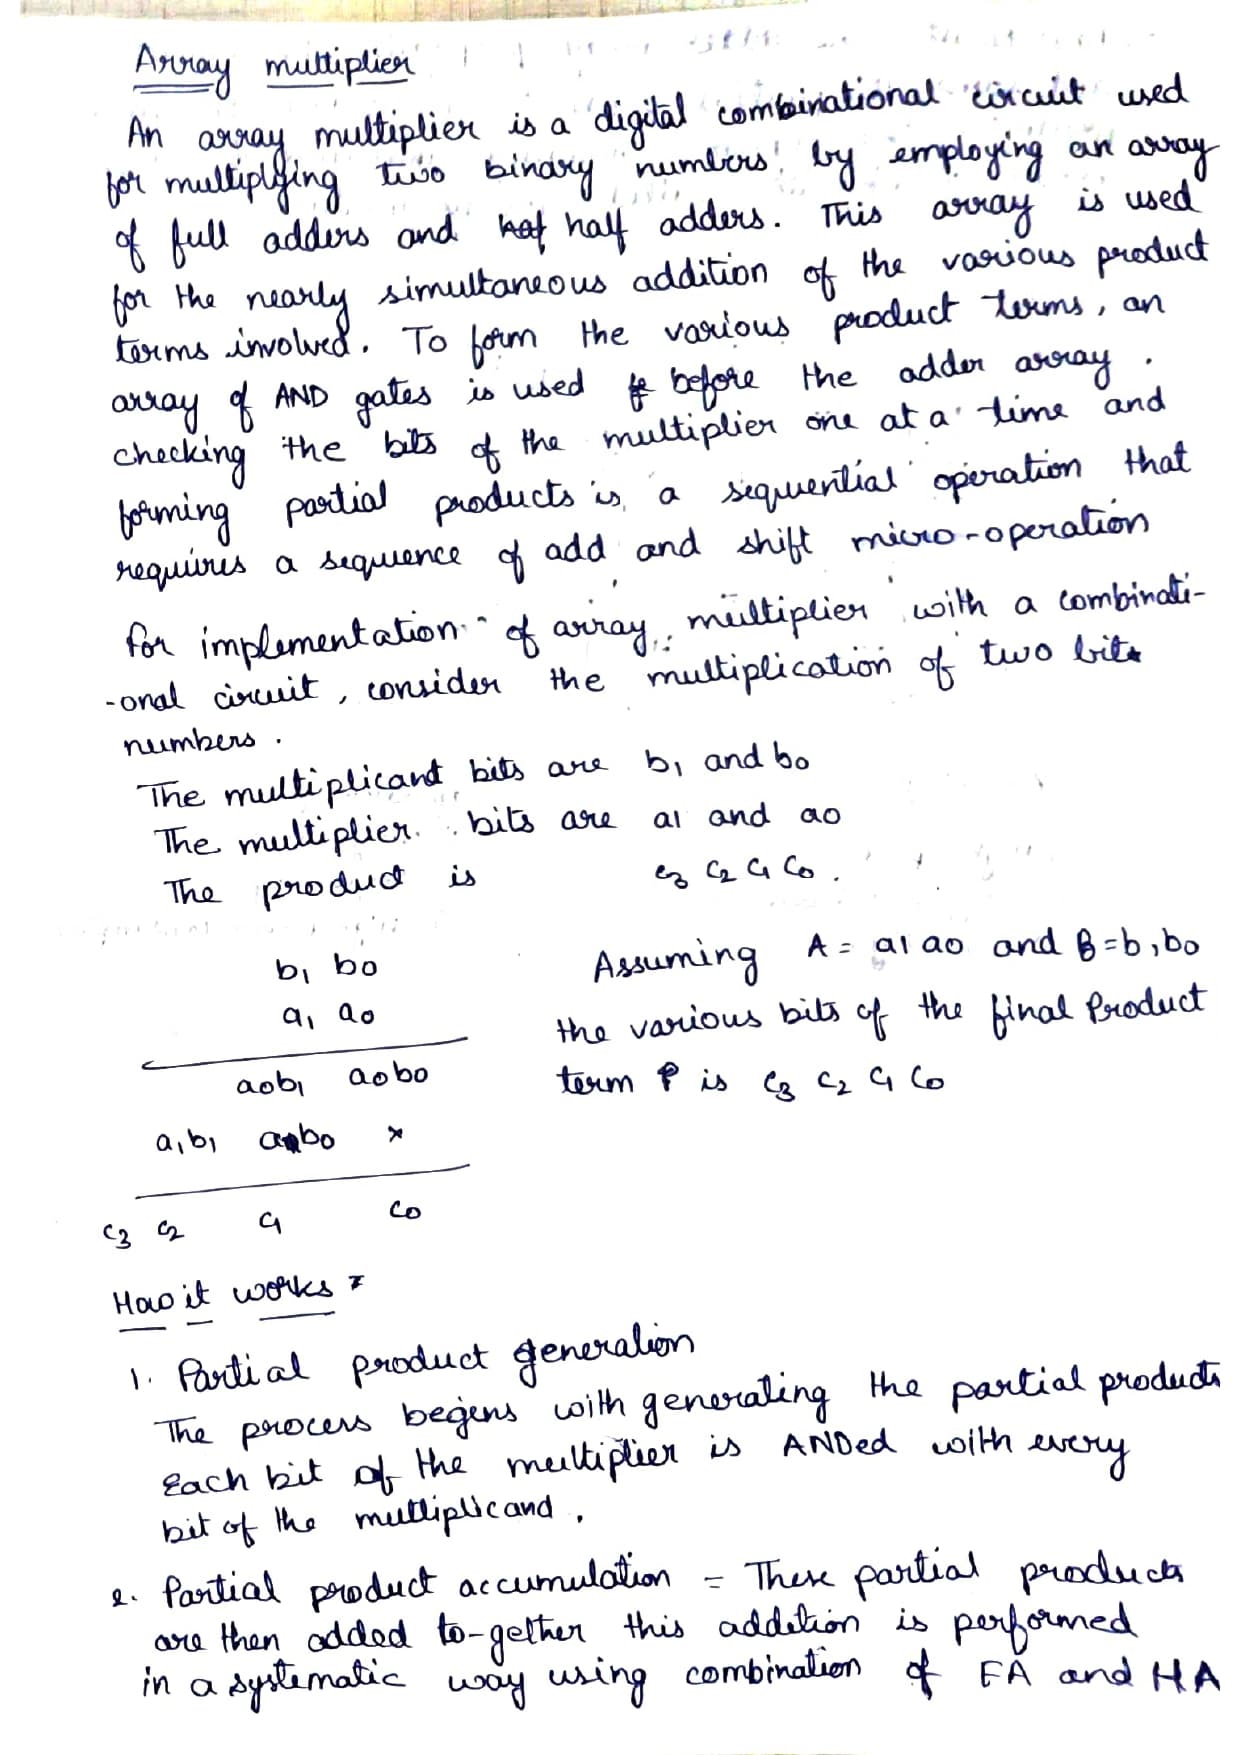 Array multiplier
An array multiplier is a digital combinational circuit used
for multiplying two binary numbers by employing an array
of full adders and half adders. This array is used
for the nearly simultaneous addition of the various product
terms involved. To form the various product terms, an
array of AND gates is used before the adder array.
checking the bits of the multiplier one at a time and
forming partial products is a sequential operation that
requires a sequence of add and shift micro-operation
for implementation of array multiplier with a combinati-
-onal circuit, consider the multiplication of two bits
numbers.
The multiplicant bits are b1 and b0
The multiplier bits are a1 and a0
The product is c3 c2 c1 c0.
b1 b0
a1 a0
a0b1 a0b0
a1b1 a1b0 x
c3 c2 c1 c0
Assuming A = a1 a0 and B = b1b0
the various bits of the final Product
term P is c3 c2 c1 c0
How it works
1. Partial product generation
The process begins with generating the partial products
Each bit of the multiplier is ANDed with every
bit of the multiplicand.
2. Partial product accumulation - These partial products
are then added to-gether this addition is performed
in a systematic way using combination of FA and HA